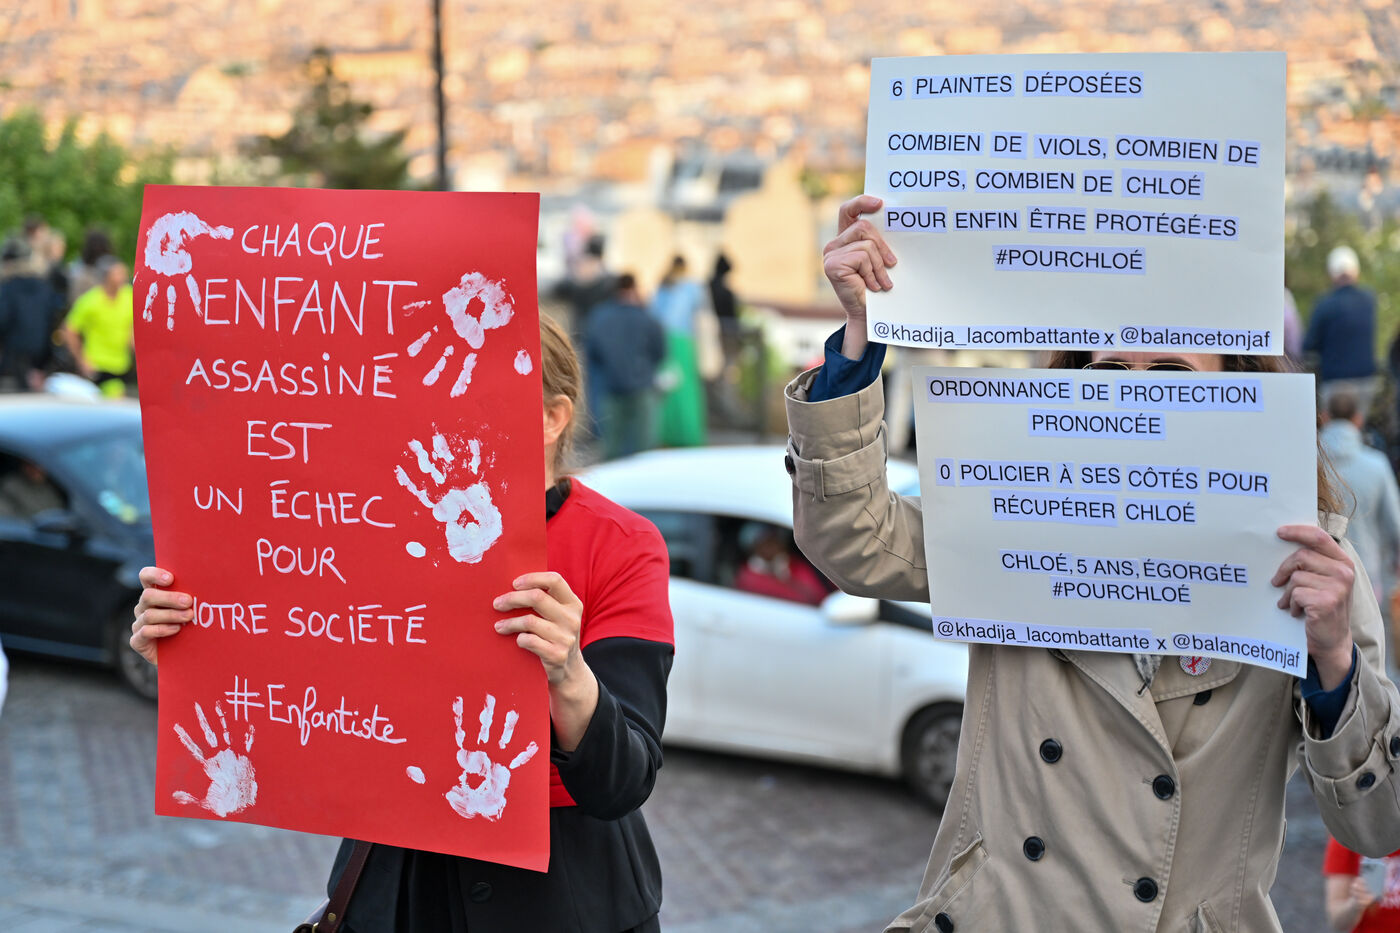 CHAQUE
ENFANT
ASSASSINÉ
EST
UN ÉCHEC
POUR
NOTRE SOCIÉTÉ
#Enfantiste
6 PLAINTES DÉPOSÉES
COMBIEN DE VIOLS, COMBIEN DE
COUPS, COMBIEN DE CHLOÉ
POUR ENFIN ÊTRE PROTÉGÉ·ES
#POURCHLOÉ
@khadija_lacombattante x @balancetonjaf
ORDONNANCE DE PROTECTION
PRONONCÉE
0 POLICIER À SES CÔTÉS POUR
RÉCUPÉRER CHLOÉ
CHLOÉ, 5 ANS, ÉGORGÉE
#POURCHLOÉ
@khadija_lacombattante x @balancetonjaf